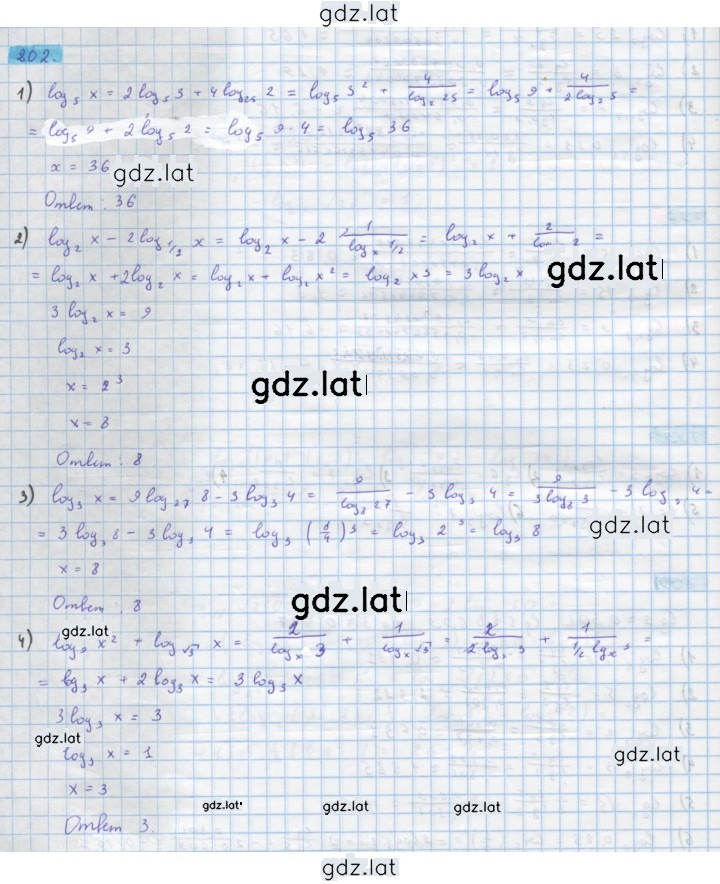 gdz.lat
202.
1) log₅ x = 2 log₅ 3 + 4 log₂₅ 2 = log₅ 3² + 4/(log₂ 25) = log₅ 9 + 4/(2 log₂ 5) =
= log₅ 9 + 2 log₅ 2 = log₅ 9 · 4 = log₅ 36
x = 36
gdz.lat
Ответ: 36
2) log₂ x - 2 log₁/₂ x = log₂ x - 2 1/(logₓ 1/2) = log₂ x + 2/(logₓ 2) =
= log₂ x + 2 log₂ x = log₂ x + log₂ x² = log₂ x³ = 3 log₂ x
gdz.lat
3 log₂ x = 9
log₂ x = 3
x = 2³
gdz.lat
x = 8
Ответ: 8
3) log₃ x = 9 log₂₇ 8 - 3 log₃ 4 = 9/(log₈ 27) - 3 log₃ 4 = 9/(3 log₈ 3) - 3 log₃ 4 =
gdz.lat
= 3 log₃ 8 - 3 log₃ 4 = log₃ (8/4)³ = log₃ 2³ = log₃ 8
x = 8
Ответ: 8
gdz.lat
gdz.lat
4) log₉ x² + log√₃ x = 2/(logₓ 3) + 1/(logₓ √3) = 2/(2 logₓ 3) + 1/(1/2 lgₓ 3) =
= log₃ x + 2 log₃ x = 3 log₃ x
3 log₃ x = 3
gdz.lat
log₃ x = 1
gdz.lat
x = 3
gdz.lat gdz.lat gdz.lat
Ответ 3.
gdz.lat